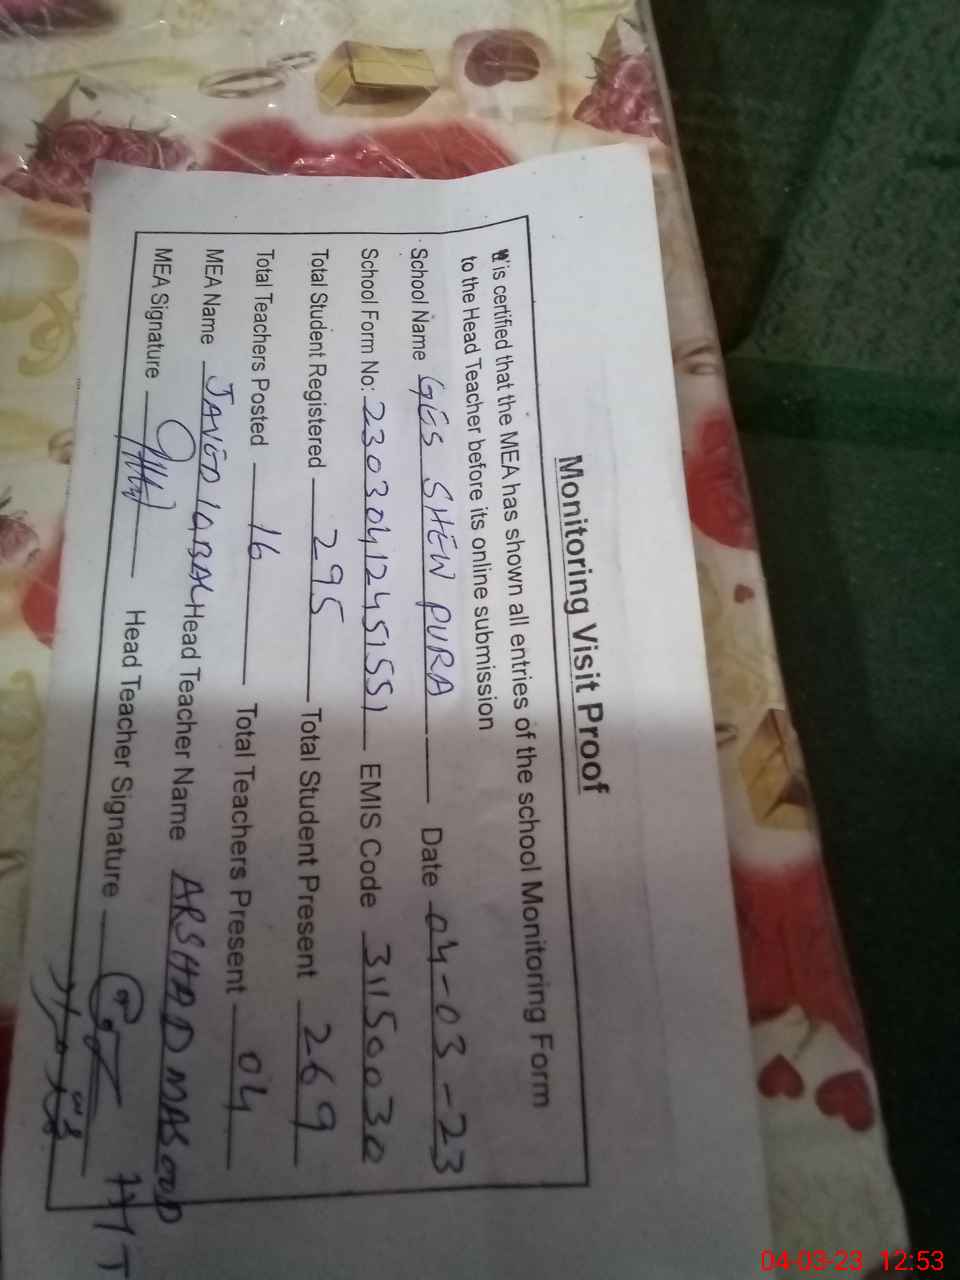 Monitoring Visit Proof
It is certified that the MEA has shown all entries of the school Monitoring Form
to the Head Teacher before its online submission
School Name GES SHEW PURA Date 04-03-23
School Form No: 23030412451551 EMIS Code 31150030
Total Student Registered 295 Total Student Present 269
Total Teachers Posted 16 Total Teachers Present 04
MEA Name JAVED IQBAL Head Teacher Name ARSHAD MASOOD
MEA Signature Head Teacher Signature
04-03-23 12:53